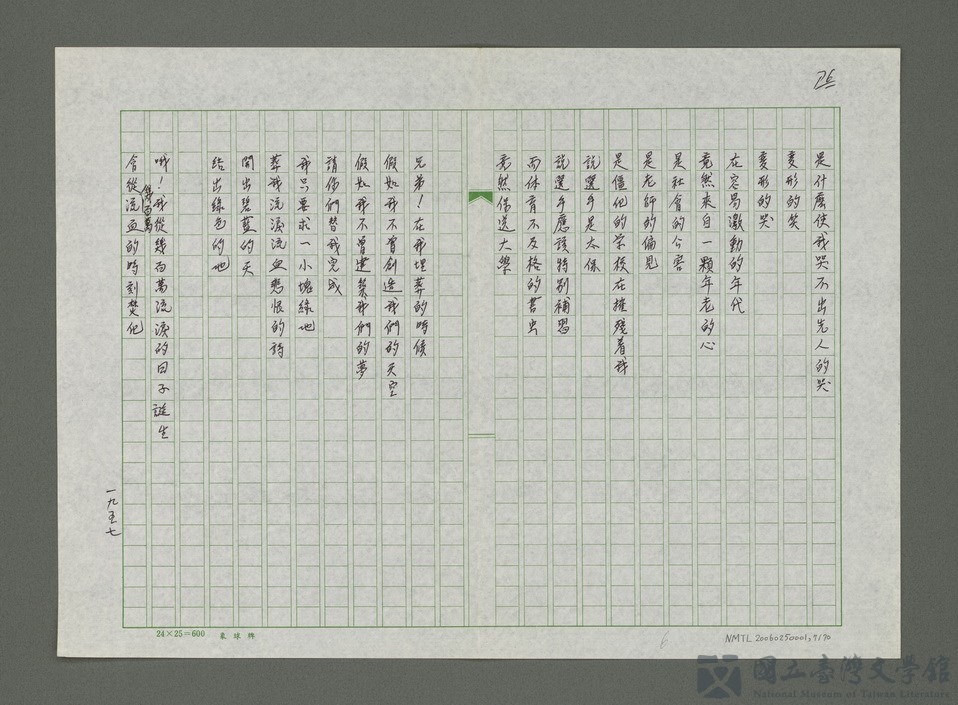 26
是什麼使我哭不出先人的哭
変形的笑
変形的哭
在容易激動的年代
竟然來自一顆年老的心
是社會的公害
是老師的偏見
是僵化的学校在摧残着我
說選手是太保
說選手應該特別補習
而体育不及格的書虫
竟然保送大學
兄弟！在我埋葬的時候
假如我不曾創造我們的天空
假如我不曾建築我們的夢
請你們替我完成
我只要求一小塊綠地
葬我流淚流血悲恨的詩
開出碧藍的天
結出綠色的地
哦！我從幾百萬流淚的日子誕生
會從幾百萬流血的時刻焚化
一九五七
24×25=600
NMTL 20060250001,9190
國立臺灣文學館
National Museum of Taiwan Literature